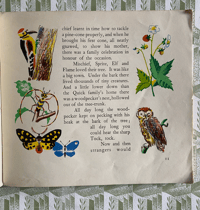 chief learnt in time how to tackle
a pine-cone properly, and when he
brought his first cone, all neatly
gnawed, to show his mother,
there was a family celebration in
honour of the occasion.
Mischief, Sprite, Elf and
Flame loved their tree. It was like
a big town. Under the bark there
lived thousands of tiny creatures.
And a little lower down than
the Quick family's home there
was a woodpecker's nest, hollowed
out of the tree-trunk.
All day long the wood-
pecker kept on pecking with his
beak at the bark of the tree;
all day long you
could hear the sharp
Tock, tock.
Now and then
strangers would